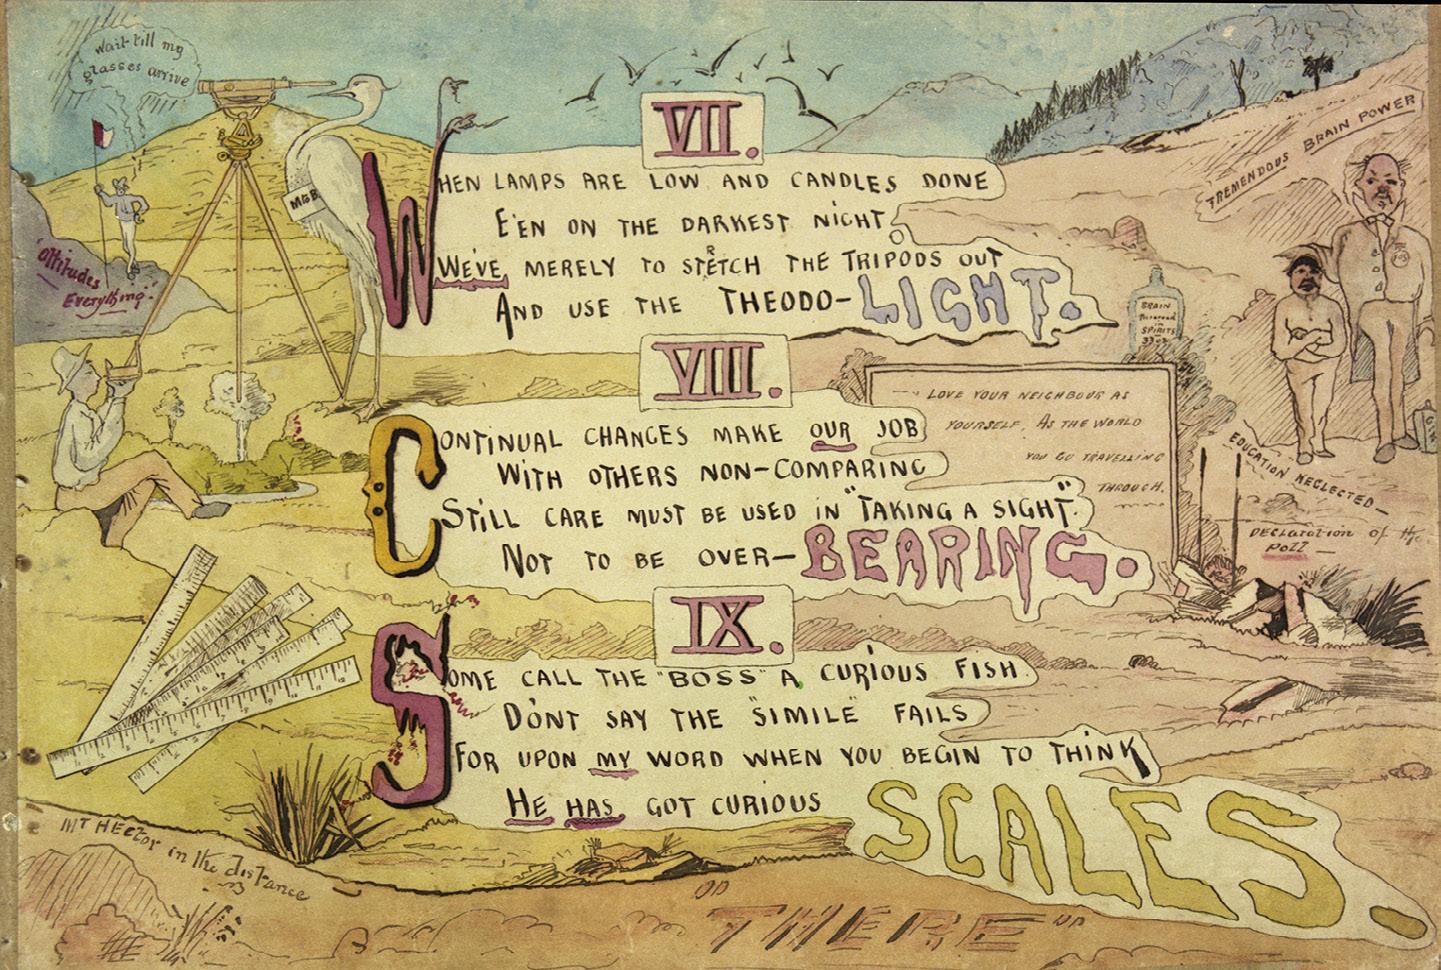 Wait till my
glasses arrive
MGB
"Attitudes
Everything"
VII.
WHEN LAMPS ARE LOW AND CANDLES DONE
E'EN ON THE DARKEST NIGHT
WE'VE MERELY TO STRETCH THE TRIPODS OUT
AND USE THE THEODO-LIGHT.
TREMENDOUS BRAIN POWER
BRAIN
Preserved
in
SPIRITS
VIII.
CONTINUAL CHANGES MAKE OUR JOB
WITH OTHERS NON-COMPARING
STILL CARE MUST BE USED IN "TAKING A SIGHT".
NOT TO BE OVER-BEARING.
LOVE YOUR NEIGHBOUR AS
YOURSELF, AS THE WORLD
YOU GO TRAVELLING
THROUGH.
GIN
EDUCATION NEGLECTED—
DECLARATION OF the
POLL—
IX.
SOME CALL THE "BOSS" A CURIOUS FISH.
DON'T SAY THE "SIMILE" FAILS
FOR UPON MY WORD WHEN YOU BEGIN TO THINK
HE HAS GOT CURIOUS SCALES.
MT HECTOR in the distance
THERE